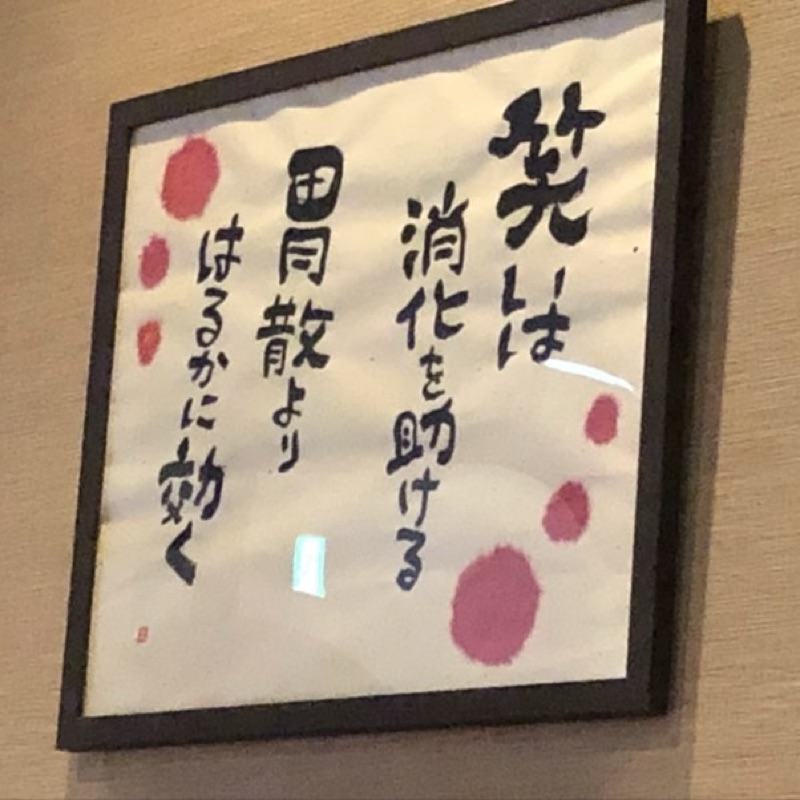 笑いは
消化を助ける
胃散より
はるかに効く